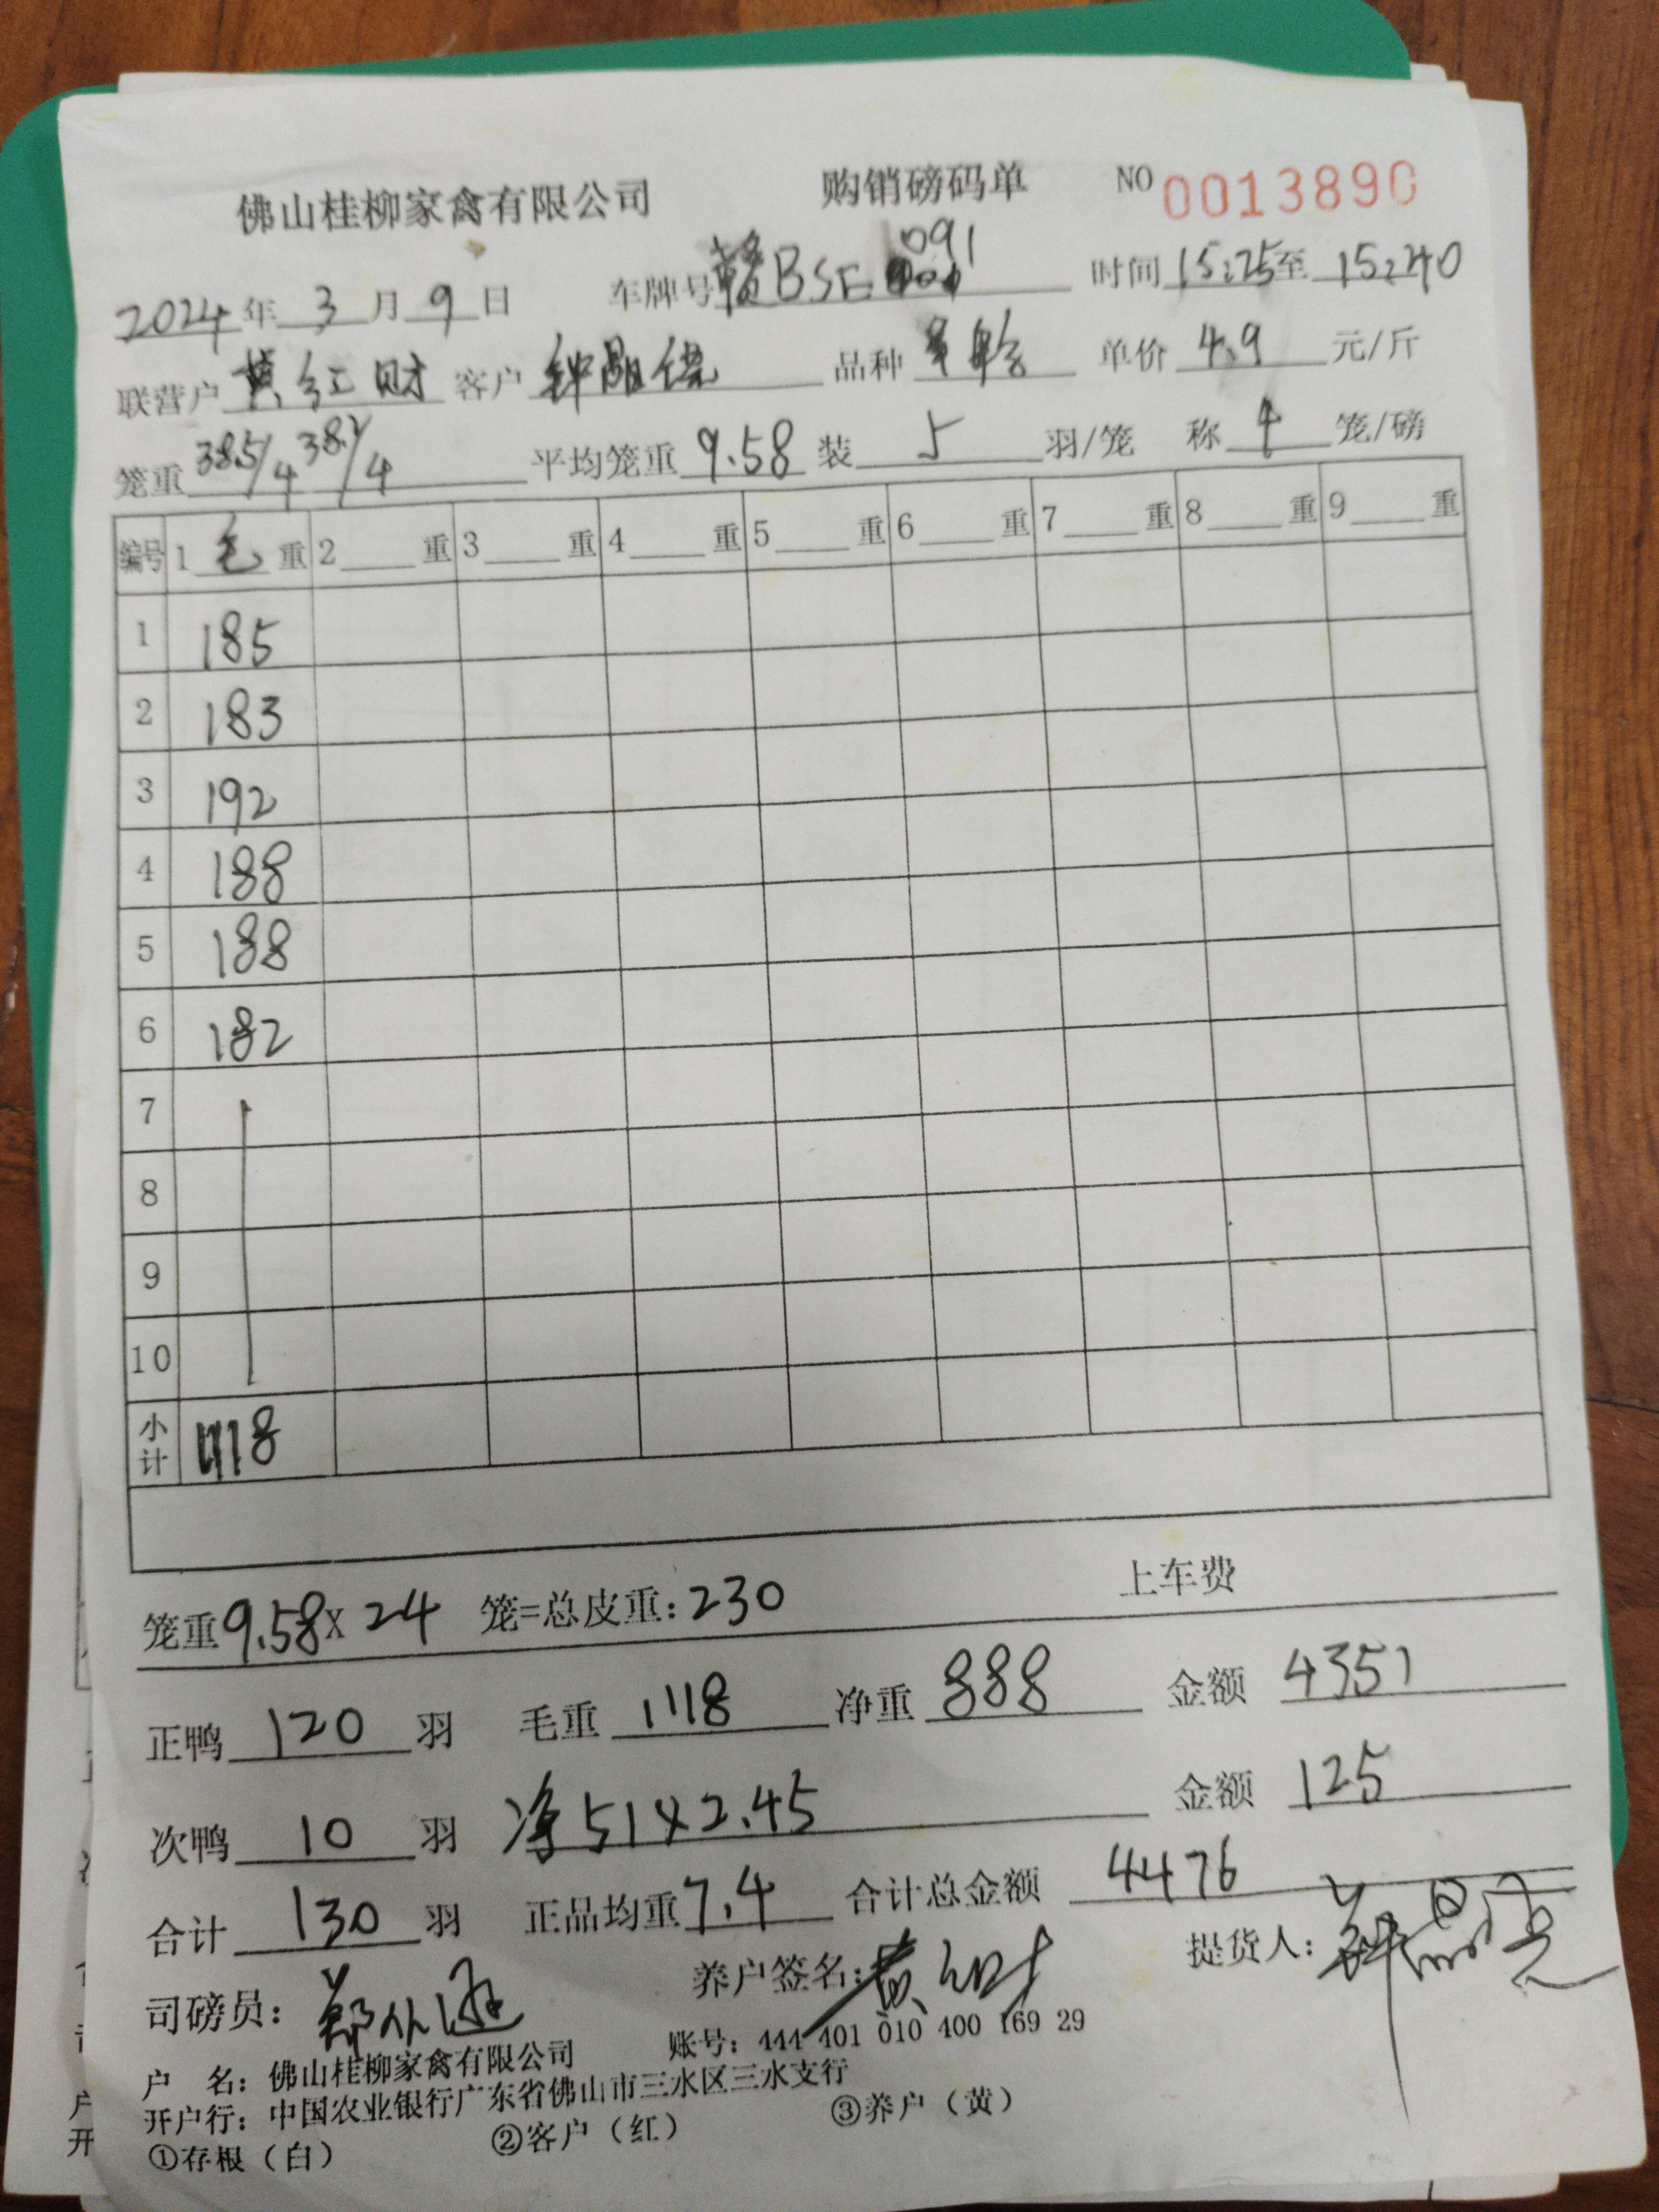 佛山桂柳家禽有限公司 购销磅码单 NO 0013890
2024 年 3 月 9 日 车牌号 赣BSE 091 时间 15:25 至 15:40
联营户 黄红财 客户 钟 品种 单价 4.9 元/斤
笼重 38.5/4 38.2/4 平均笼重 9.58 装 5 羽/笼 称 4 笼/磅
编号 1 毛 重 2 重 3 重 4 重 5 重 6 重 7 重 8 重 9 重
1 185
2 183
3 192
4 188
5 188
6 182
7
8
9
10
小计 1118
笼重 9.58 X 24 笼=总皮重: 230 上车费
正鸭 120 羽 毛重 1118 净重 888 金额 4351
次鸭 10 羽 净 51X2.45 金额 125
合计 130 羽 正品均重 7.4 合计总金额 4476
司磅员: 郑 养户签名: 黄 财 提货人: 钟
户 名: 佛山桂柳家禽有限公司 账号: 444 401 010 400 169 29
开户行: 中国农业银行广东省佛山市三水区三水支行
①存根（白） ②客户（红） ③养户（黄）